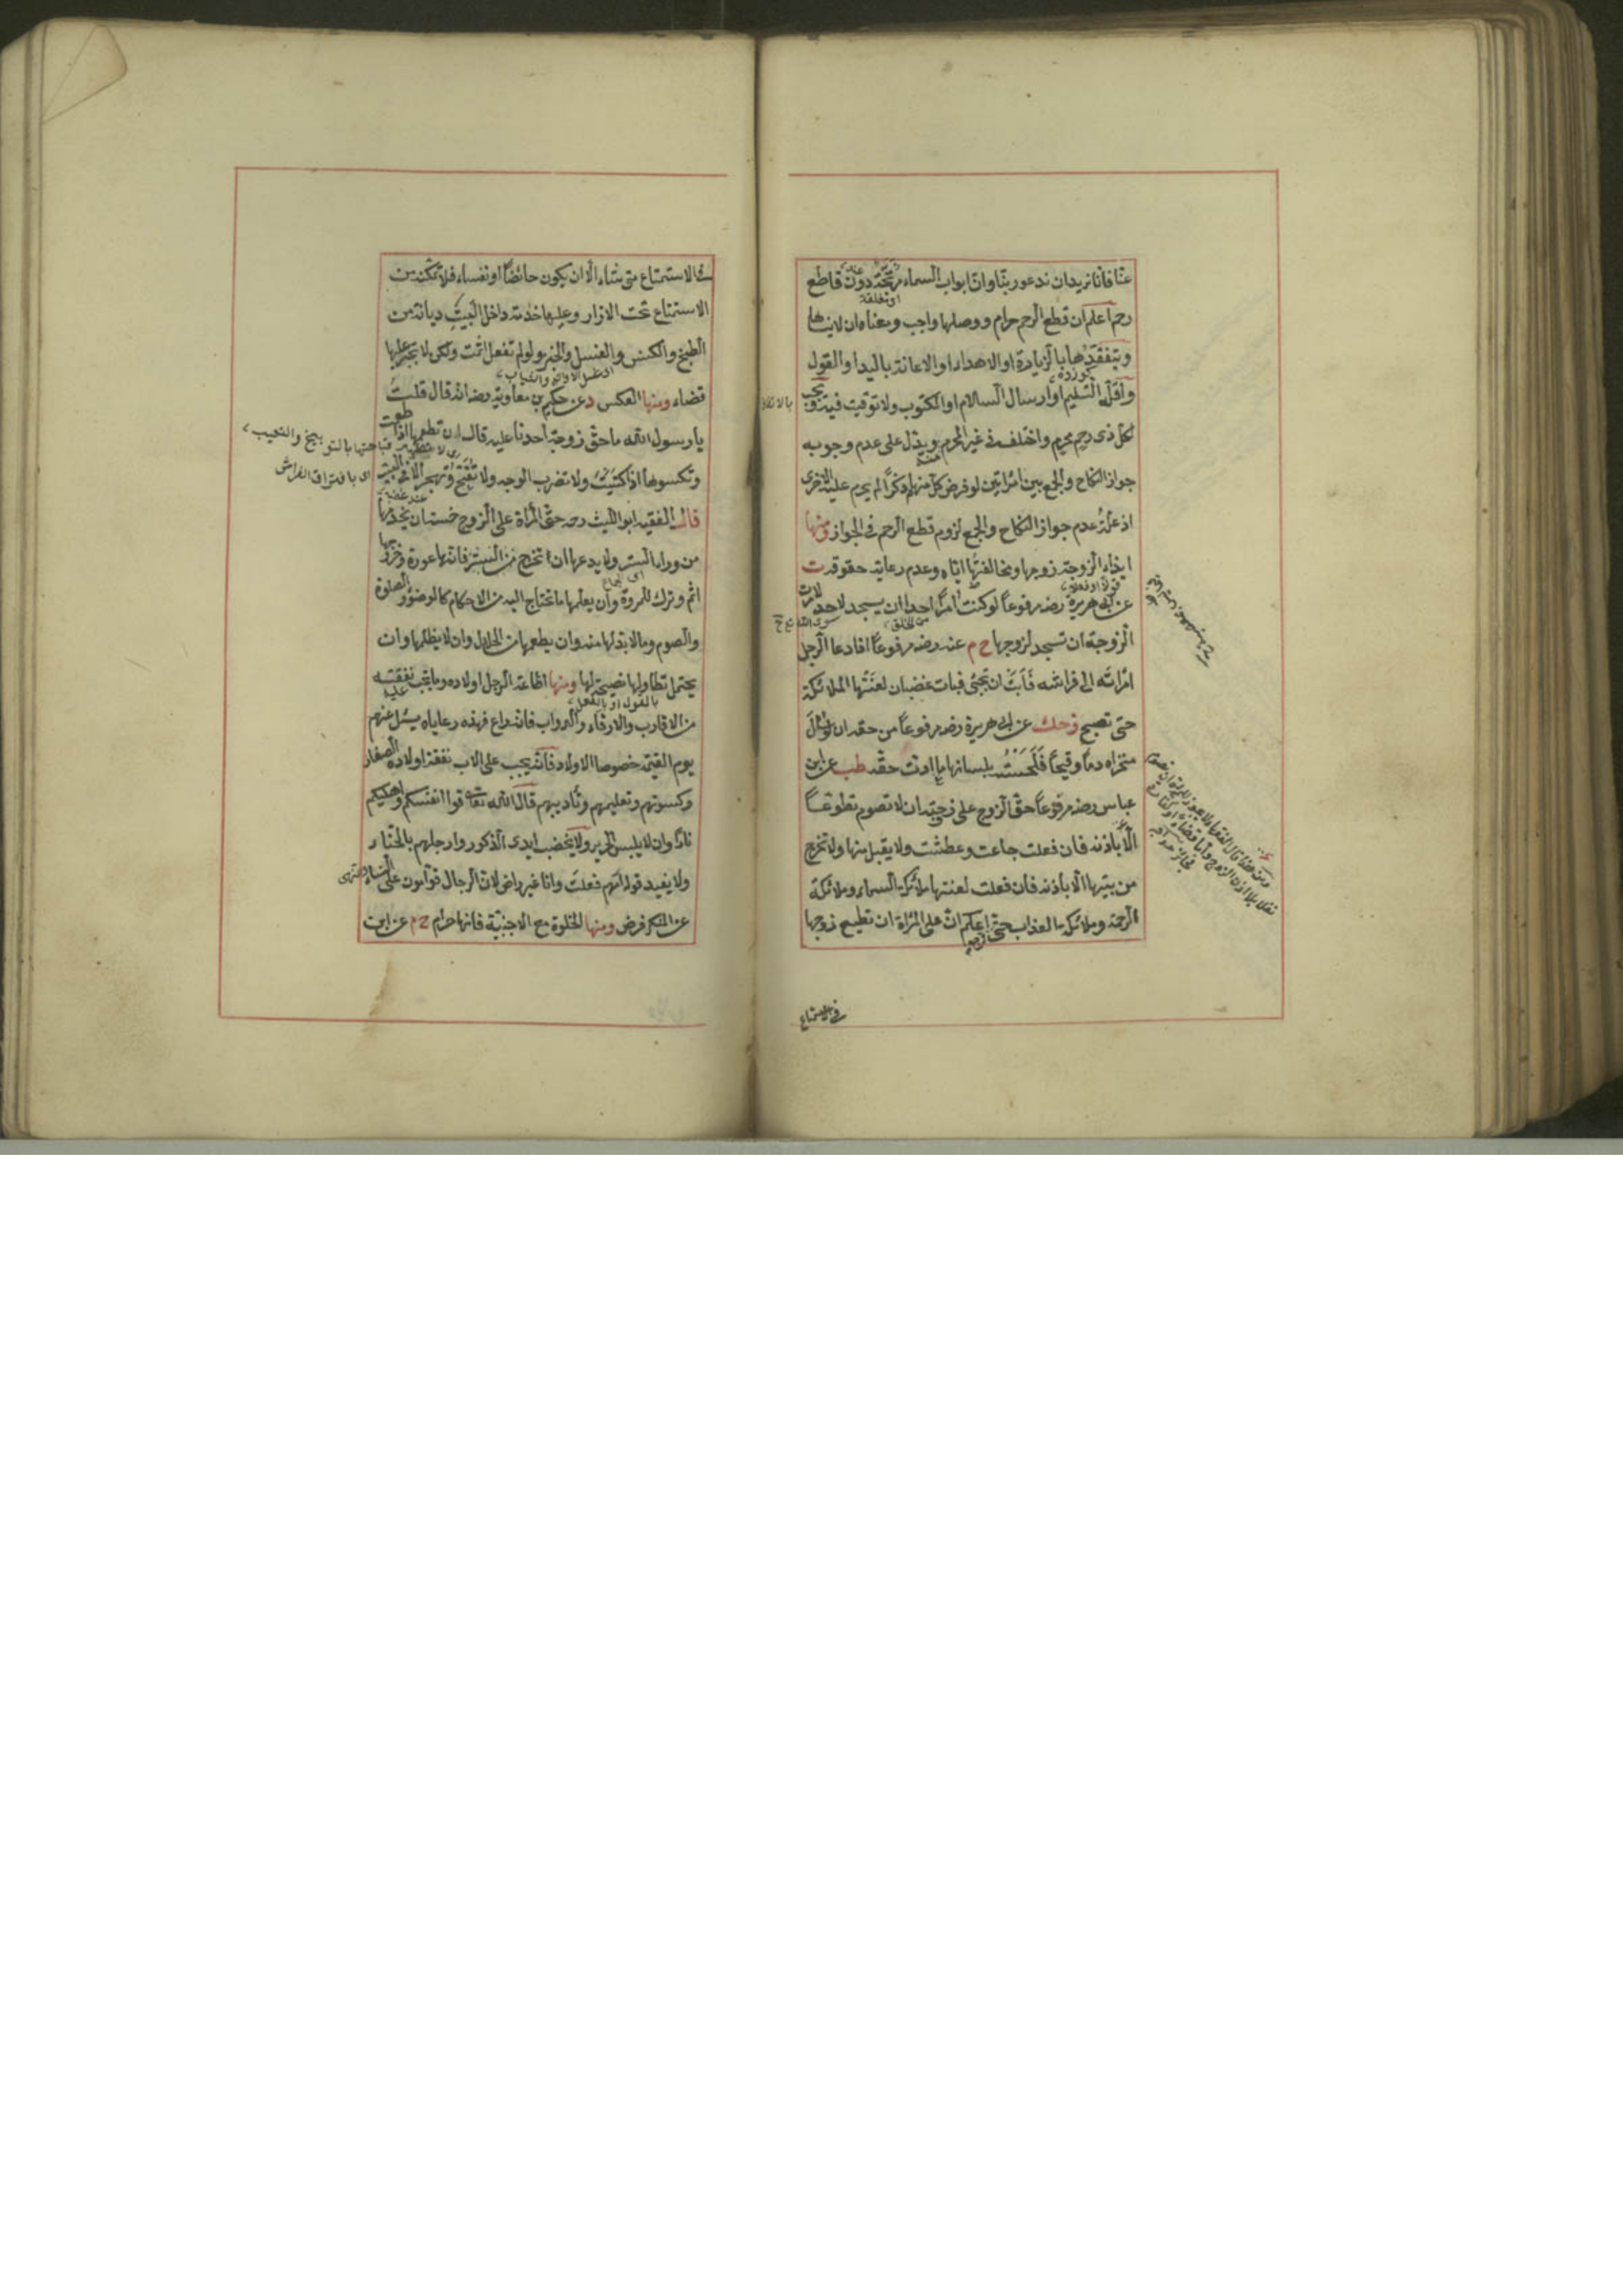 عنا فانا نريد ان ندعو ربنا وان ابواب السماء مرتجة دون قاطع
او مغلقة
رحم اعلم ان قطع الرحم حرام ووصلها واجب ومعناه ان لا ينساها
ويتفقدها بالزيارة او الاهداء او الاعانة باليد او القول
واقله التسليم او ارسال السلام او المكتوب ولا توقيت فيه ويجب
لكل ذى رحم محرم واختلف فى غير المحرم ويدل على عدم وجوبه
جواز النكاح والجمع بين امراتين لو فرض كل منهما ذكرا لم يحرم عليه الاخرى
اذ علة عدم جواز النكاح والجمع لزوم قطع الرحم فى الجواز ومنها
ايذاء الزوجة زوجها ومخالفتها اياه وعدم رعاية حقوقه ت
عن ابى هريرة رضه مرفوعا لو كنت امرا احدا ان يسجد لاحد لامرت
الزوجة ان تسجد لزوجها خ م عنه رضه مرفوعا اذا دعا الرجل
امراته الى فراشه فابت ان تجئ فبات غضبان لعنتها الملائكة
حتى تصبح زحك عن ابى هريرة رضه مرفوعا من حقه ان لو سال
منخراه دما وقيحا فلحسته بلسانها ما ادت حقه طب عن ابن
عباس رضه مرفوعا حق الزوج على زوجته ان لا تصوم تطوعا
الا باذنه فان فعلت جاعت وعطشت ولا يقبل منها ولا تخرج
من بيتها الا باذنه فان فعلت لعنتها ملائكة السماء وملائكة
الرحمة وملائكة العذاب حتى ترجع اعلم ان على المراة ان تطيع زوجها
فى الاستمتاع
فى الاستمتاع متى شاء الا ان يكون حائضا او نفساء فلا تمكنه من
الاستمتاع تحت الازار وعليها خدمة داخل البيت ديانة من
الطبخ والكنس والغسل والخبز ولو لم تفعل اثمت ولكن لا تجبر عليها
قضاء ومنها العكس د عن حكيم بن معاوية رضه انه قال قلت
يا رسول الله ما حق زوجة احدنا عليه قال ان تطعمها اذا طعمت
وتكسوها اذا اكتسيت ولا تضرب الوجه ولا تقبح ولا تهجر الا فى البيت
اى بافتراق الفراش
قال الفقيه ابو الليث رحه حق المراة على الزوج خمسة ان يخدمها
من وراء الستر ولا يدعها ان تخرج من الستر فانها عورة وخروجها
اثم وترك للمروة وان يعلمها ما تحتاج اليه من الاحكام كالوضوء والصلوة
والصوم وما لا بد لها منه وان يطعمها من الحلال وان لا يظلمها وان
يحتمل تطاولها نصيحة لها ومنها اضاعة الرجل اولاده وما يجب نفقته عليه
بالقول او بالفعل
من الاقارب والارقاء والدواب فانه راع فهذه رعاياه يسئل عنهم
يوم القيمة خصوصا الاولاد فانه يجب على الاب نفقة اولاده الصغار
وكسوتهم وتعليمهم وتاديبهم قال الله تعالى قوا انفسكم واهليكم
نارا وان لا يلبس الحرير ولا يخضب ايدى الذكور وارجلهم بالحناء
ولا يفيد قوله امهم فعلت وانا غير راض لان الرجال قوامون على النساء
عن المنكر فرض ومنها الخلوة مع الاجنبية فانها حرام خ م عن ابن